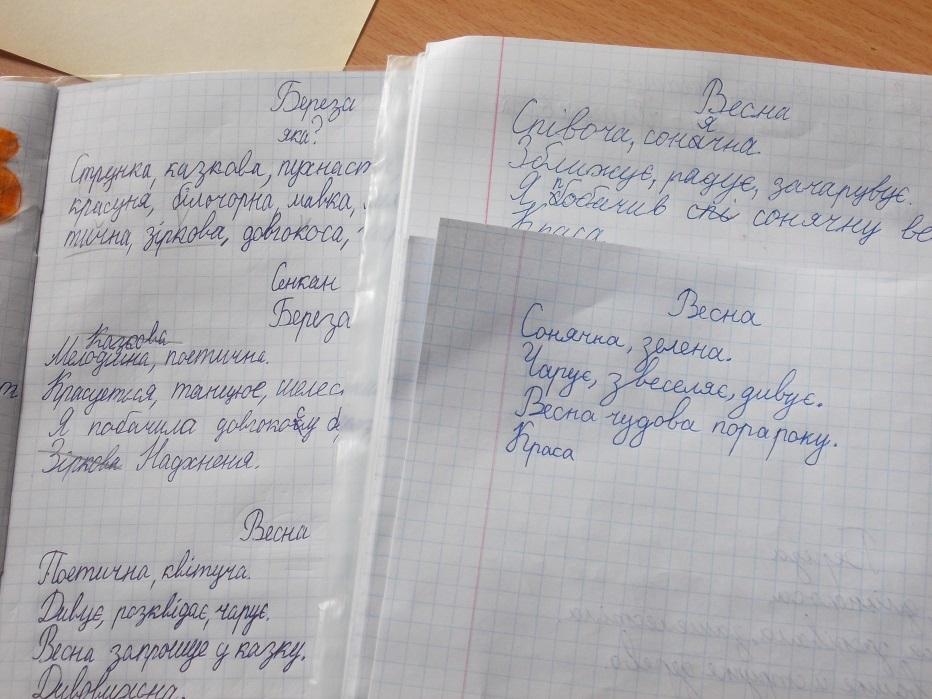 Береза
яка?
Струнка, казкова, пухнаст
красуня, білочорна, мавка,
тична, зіркова, довгокоса,
Сенкан
Береза
Казкова
Мелодійна, поетична.
Красується, танцює, шелес
Я побачила довгокосу
Зіркова Надхнення.
Весна
Поетична, квітуча.
Дивує, розквідає, чарує.
Весна запрошує у казку.
Дивовижна.
Весна
Співоча, сонячна
Зближує, радує, зачарувує.
Я побачив спі сонячну ве
Краса
Весна
Сонячна, зелена.
Чарує, звеселяє, дивує.
Весна чудова порароку.
Краса